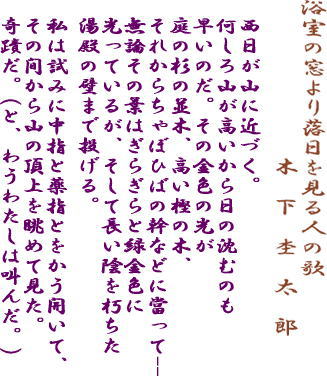 浴室の窓より落日を見る人の歌
木下杢太郎
西日が山に近づく。
何しろ山が高いから日の沈むのも
早いのだ。その金色の光が
庭の杉の並木、高い樫の木、
それからちやぼひばの幹などに當つて――
無論その景はぎらぎらと緑金色に
光つているが、そして長い陰を朽ちた
湯殿の壁まで投げる。
私は試みに中指と藥指とをかう開いて、
その間から山の頂上を眺めて見た。
奇蹟だ。(と、わうわたしは叫んだ。)